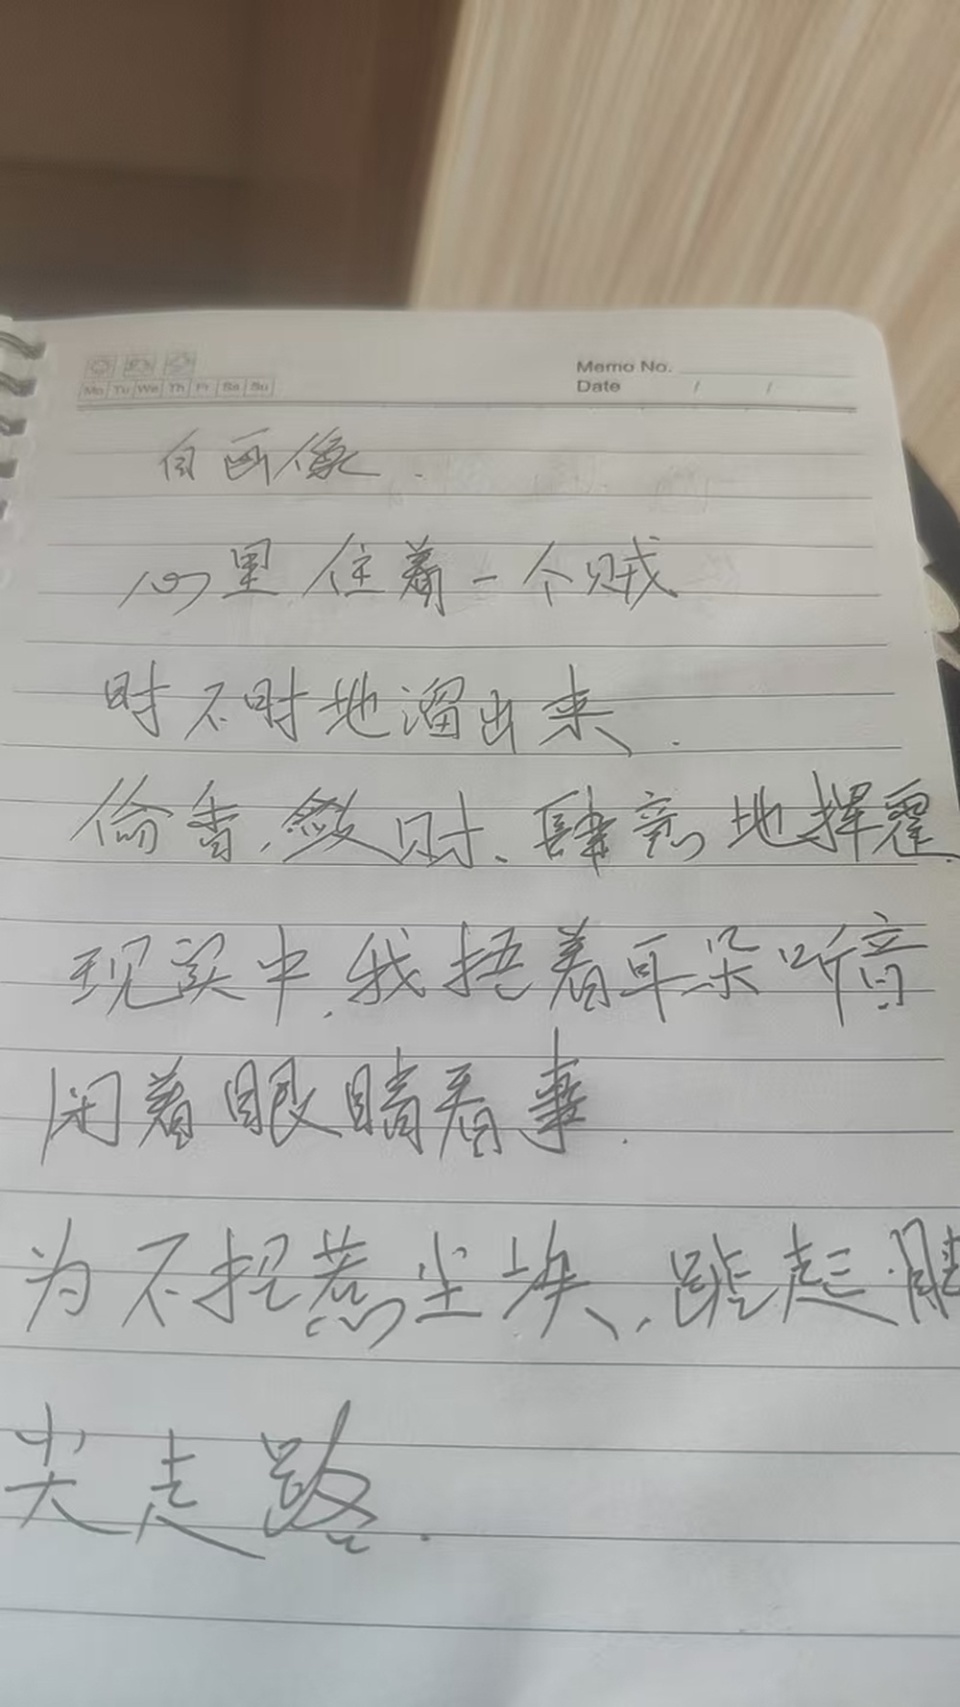 Memo No.
Mo Tu We Th Fr Sa Su
Date / /
自画像.
心里住着一个贼
时不时地溜出来.
偷香,敛财、肆意地挥霍.
现实中,我捂着耳朵听音
闭着眼睛看事.
为不招惹尘埃,踮起脚
尖走路.